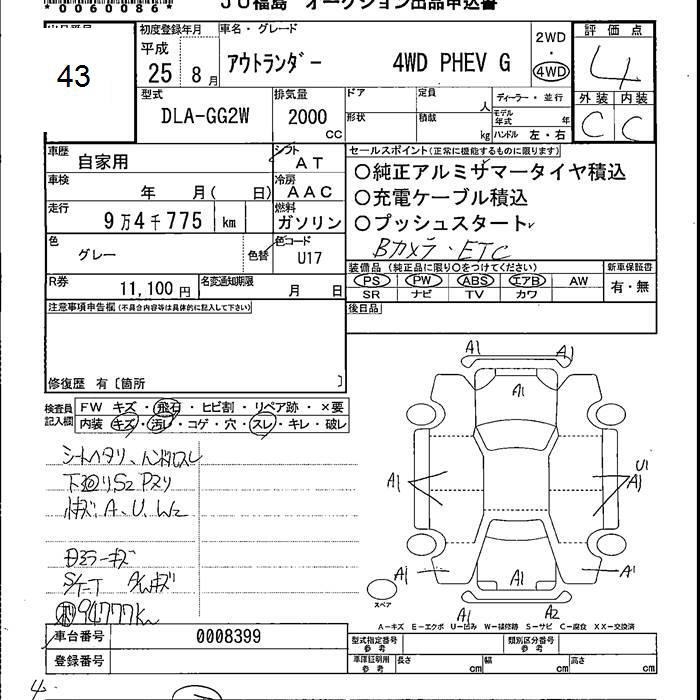 *0060086*
JU福島 オークション出品申込書
43
初度登録年月
平成 25年 8月
車名・グレード
アウトランダー 4WD PHEV G
2WD
・
4WD
評価点
4
外装 内装
C C
型式
DLA-GG2W
排気量
2000 cc
ドア
形状
定員 人
積載 kg
ディーラー・並行
モデル年式 年
ハンドル 左・右
車歴
自家用
シフト
AT
車検
年 月( 日)
冷房
AAC
走行
9万4千775 km
燃料
ガソリン
色
グレー
色替
色コード
U17
セールスポイント(正常に機能するものに限ります)
○純正アルミサマータイヤ積込
○充電ケーブル積込
○プッシュスタート
Bカメラ・ETC
R券
11,100円
名変通知期限
月 日
装備品(純正品に限り○をつけてください)
PS PW ABS エアB AW
SR ナビ TV カワ
新車保証書
有・無
後日品
注意事項申告欄(不具合内容等は具体的に記入して下さい)
修復歴 有〔箇所 〕
検査員記入欄
FW キズ・飛石・ヒビ割・リペア跡・×要
内装 キズ・汚れ・コゲ・穴・スレ・キレ・破レ
シートヘタリ、ハンドルスレ
下廻りS2 Pスリ
小キズ A、U、W2
ミラーキズ
A/Wキズ
94777km
A1 A1
A1
A1
U1
A1
A1 A1
A1
A1 A2
スペア
A-キズ E-エクボ U-凹み W-補修跡 S-サビ C-腐食 XX-交換済
車台番号
0008399
登録番号
型式指定番号
参考
類別区分番号
参考
車庫証明用
参考
長さ cm
幅 cm
高さ cm
4